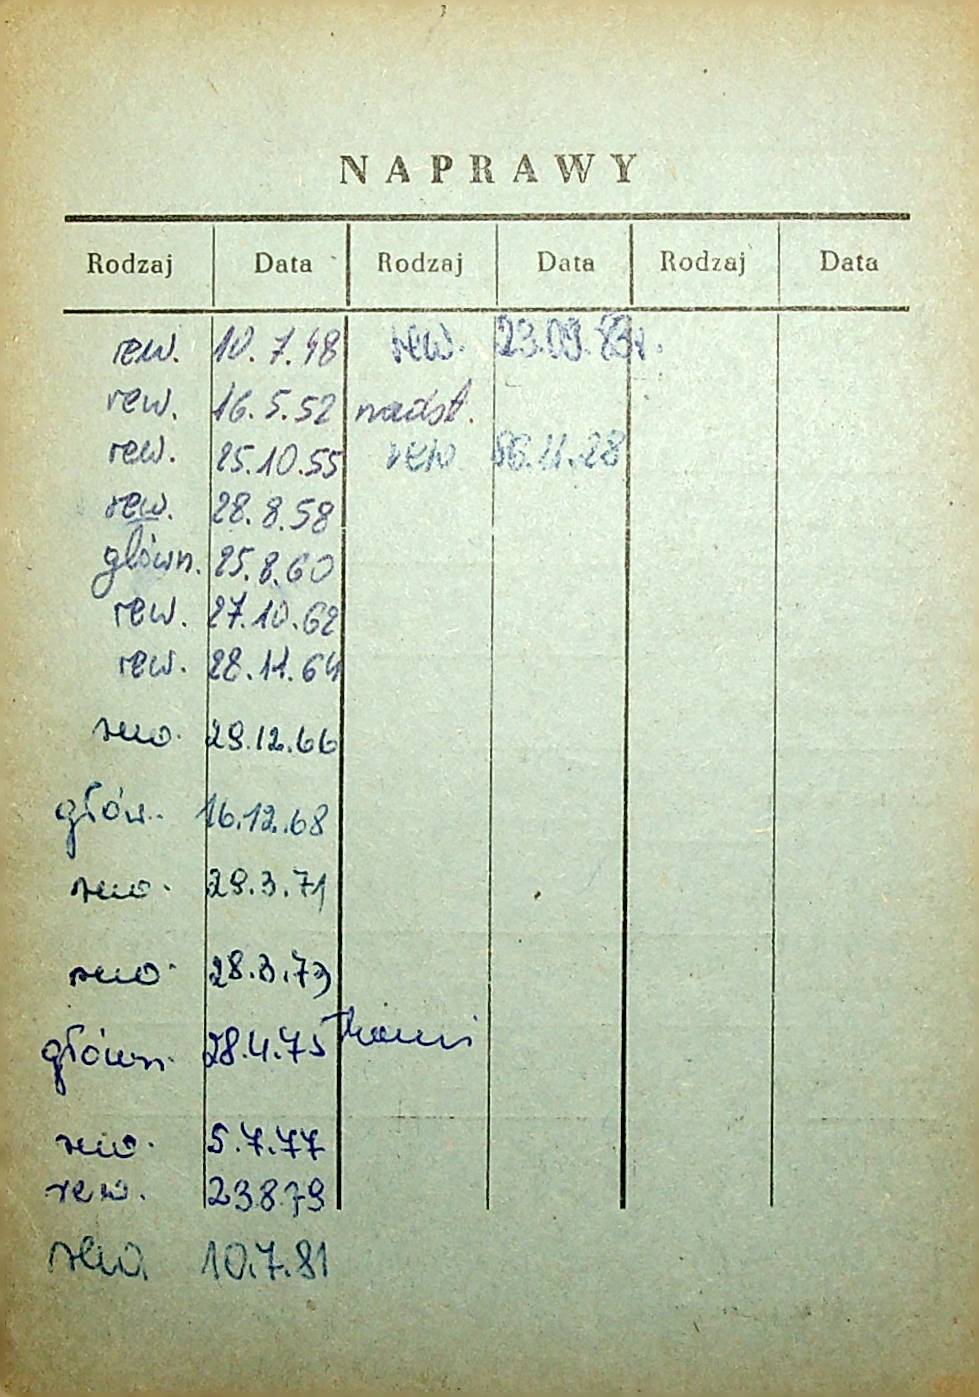 NAPRAWY
Rodzaj Data Rodzaj Data Rodzaj Data
rew. 10.7.48 rew. 23.09.83r.
rew. 16.5.52 nadst.
rew. 25.10.55 rew 86.11.28
rew. 28.8.58
główn. 25.8.60
rew. 27.10.62
rew. 28.11.64
rew. 29.12.66
głów. 16.12.68
rew. 29.3.71
rew. 28.3.73
główn. 28.4.75
rew. 5.7.77
rew. 23.8.79
rew. 10.7.81